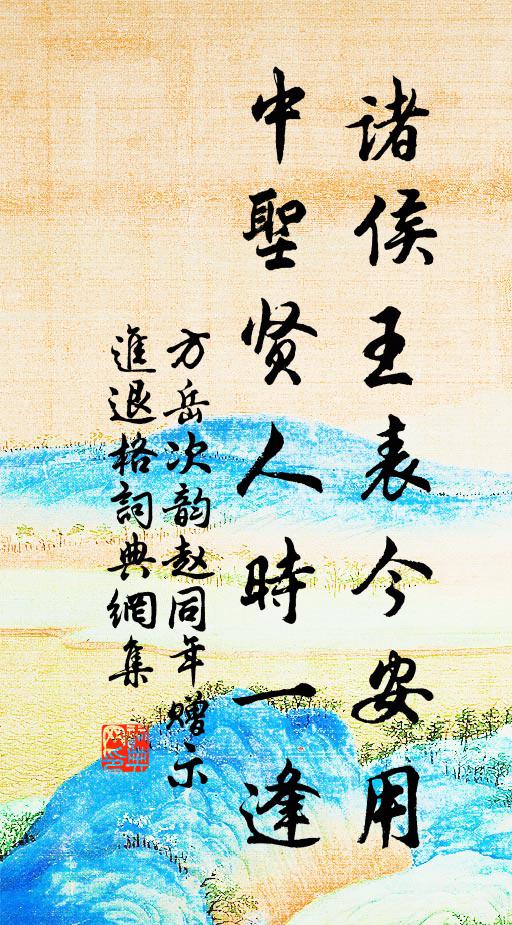 诸侯王表今安用
中聖贤人時一逢
方岳次韵赵同年赠示
進退格詞典網集